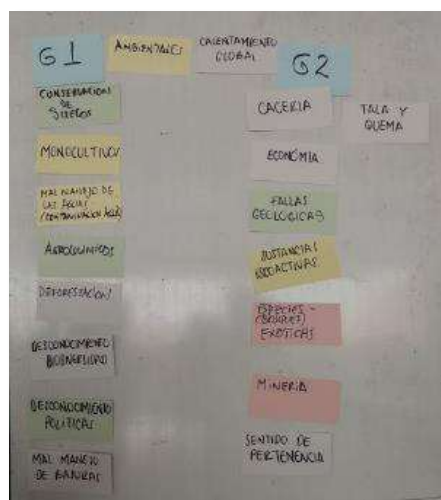 G1
AMBIENTALES
CALENTAMIENTO
GLOBAL
G2
CONSERVACION
DE
SUELOS
MONOCULTIVOS
MAL MANEJO DE
LAS AGUAS
(CONTAMINACION AGUA)
AGROQUIMICOS
DEFORESTACION
DESCONOCIMIENTO
BIODIVERSIDAD
DESCONOCIMIENTO
POLITICAS
MAL MANEJO
DE BASURAS
CACERIA
TALA Y
QUEMA
ECONOMIA
FALLAS
GEOLOGICAS
SUSTANCIAS
ESPECIES -
(BOSQUES)
EXOTICAS
MINERIA
SENTIDO DE
PERTENENCIA